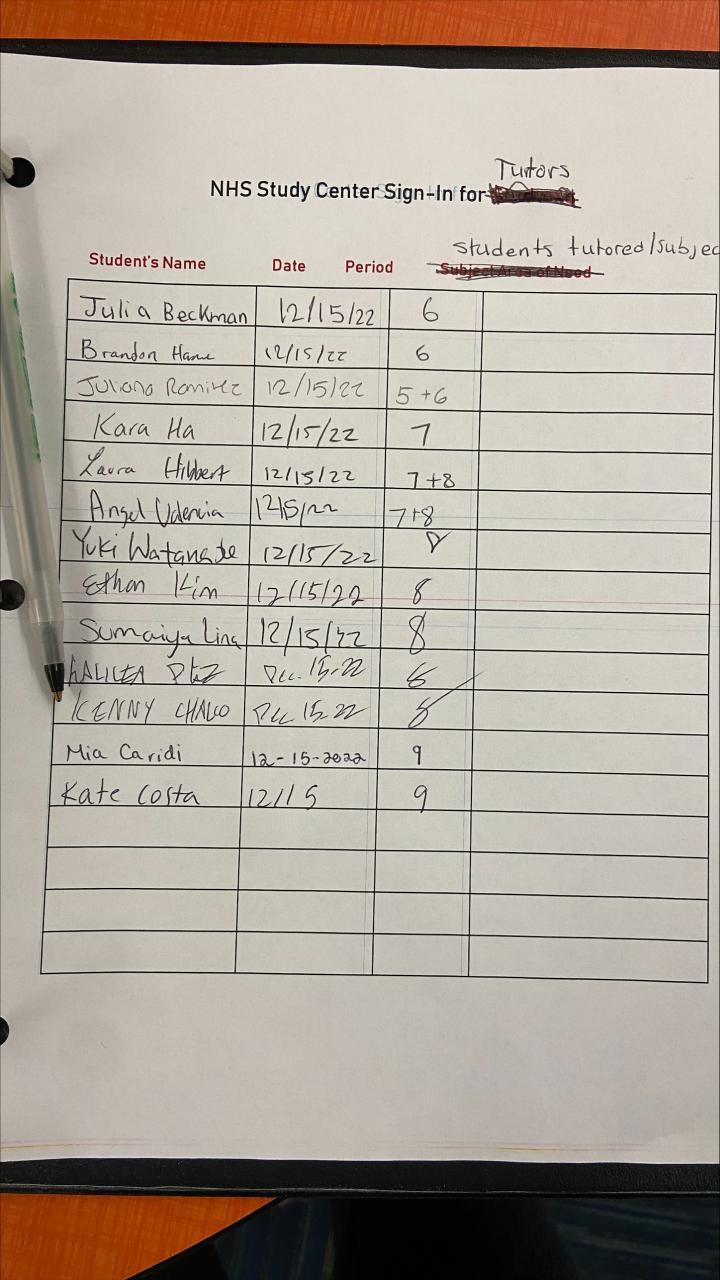 Tutors
NHS Study Center Sign-In for
students tutored/subjec
Student's Name Date Period Subject Area of Need
Julia Beckman 12/15/22 6
Brandon 12/15/22 6
Juliana Ramirez 12/15/22 5+6
Kara Ha 12/15/22 7
Laura Hibbert 12/15/22 7+8
Angel 12/15/22 7+8
Yuki Watanabe 12/15/22 8
Ethan Kim 12/15/22 8
Sumaiya Lina 12/15/22 8
Dec. 15-22 8
KENNY Dec 15-22 8
Mia Caridi 12-15-2022 9
Kate Costa 12/15 9